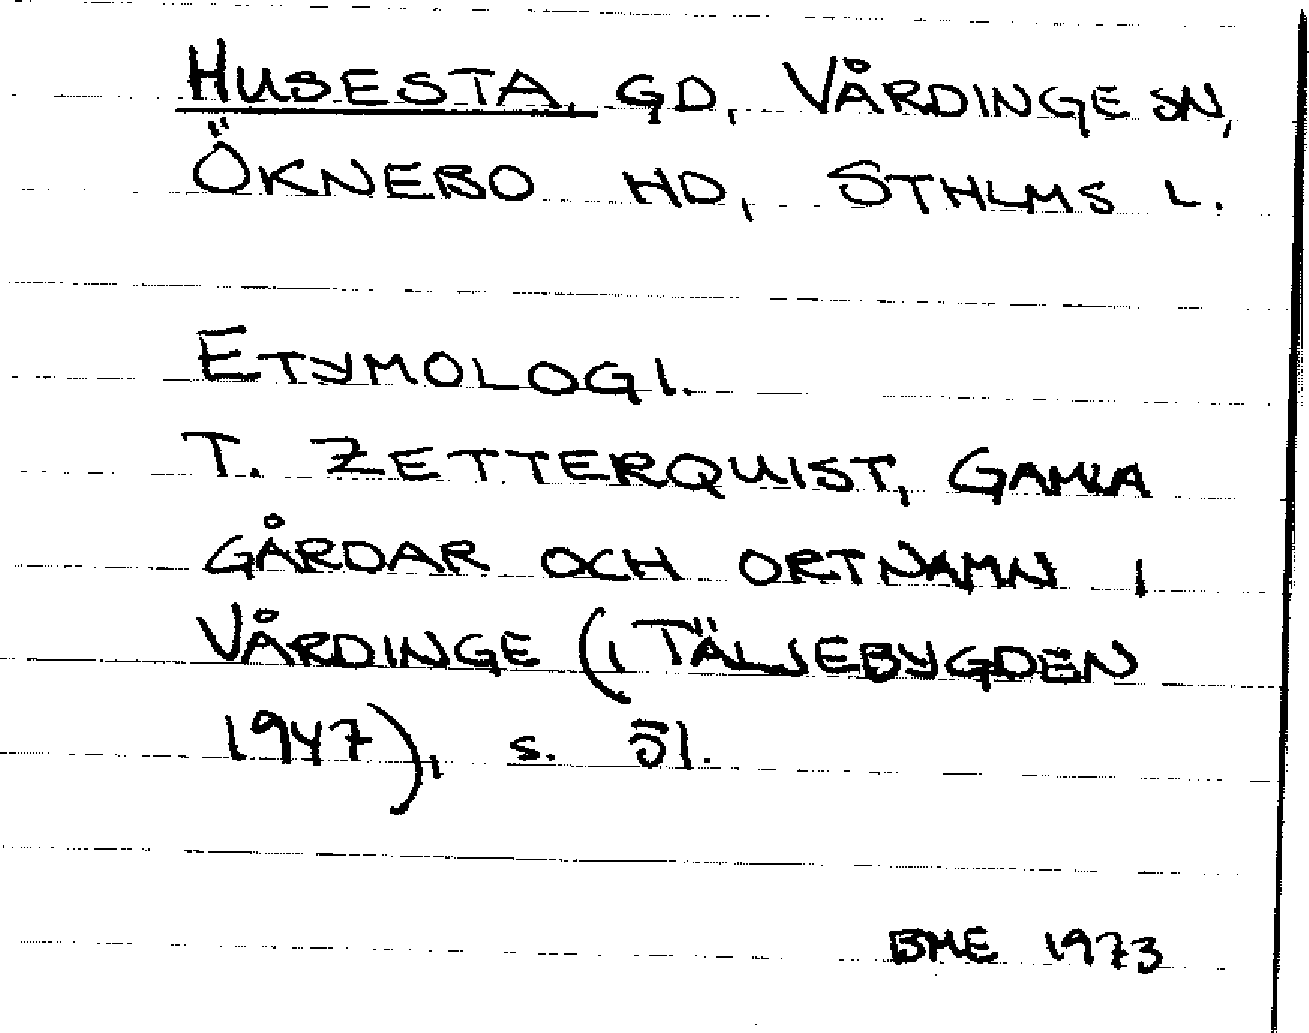 HUSESTA, GD, VÅRDINGE SN,
ÖKNEBO HD, STHLMS L.
ETYMOLOGI.
T. ZETTERQUIST, GAMLA
GÅRDAR OCH ORTNAMN I
VÅRDINGE (I TÄLJEBYGDEN
1947), s. 51.
BME 1973